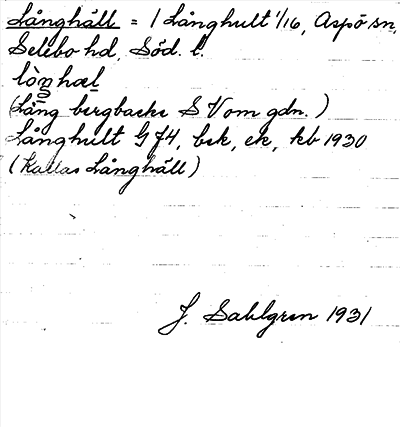 Långhäll = / Långhult 1/16, Aspö sn,
Selebo hd, Söd. l.
lòŋhæl
(Lång bergbacke S V om gdn.)
Långhult G J4, bsk, ek, kb 1930
(Kallas Långhäll)
J. Sahlgren 1931